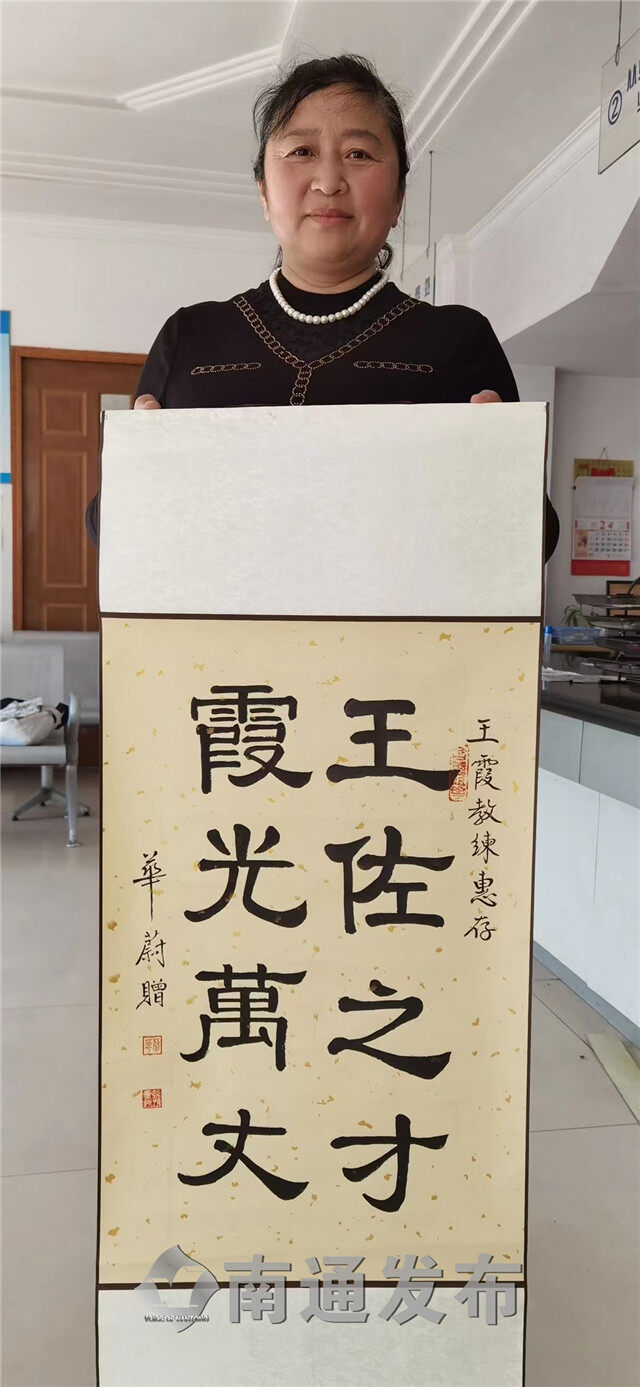 王霞教練惠存
王佐之才
霞光萬丈
華蔚贈
②
2
南通发布
VOICE OF NANTONG